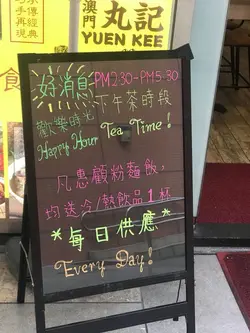 澳門 丸記
YUEN KEE
食
好消息 PM2:30-PM5:30
下午茶時段
歡樂時光
Happy Hour Tea Time!
凡惠顧粉麵飯，
均送冷/熱飲品1杯
*每日供應*
Every Day!